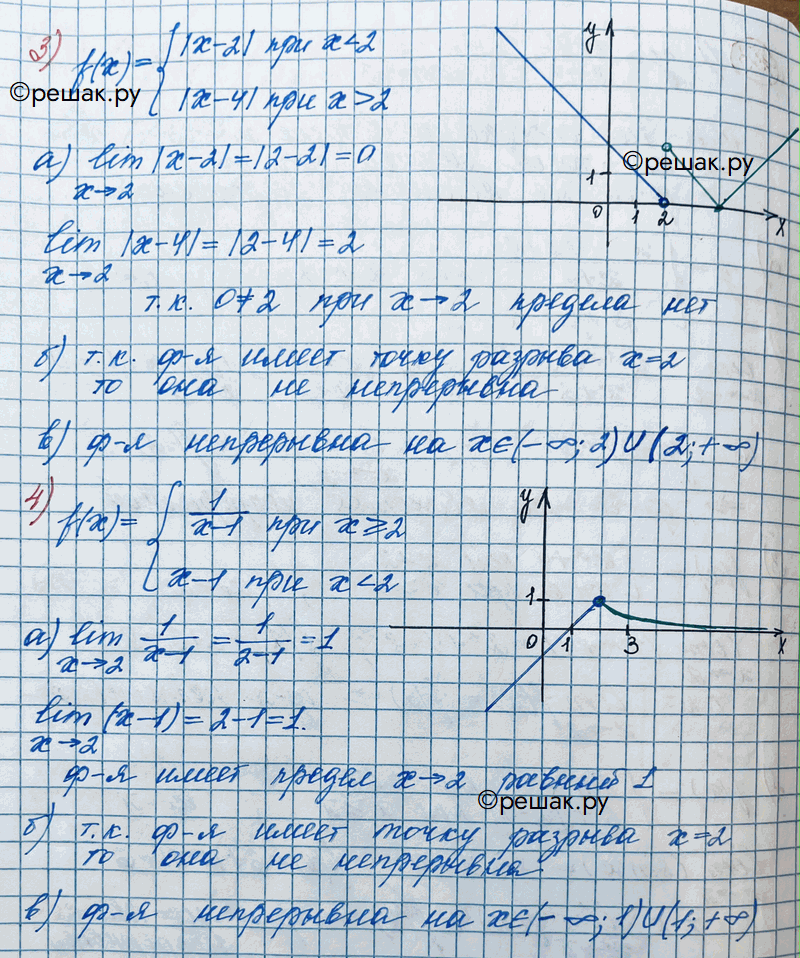 3) f(x) = { |x-2| при x<2
©решак.ру
|x-4| при x>2
y
1
0 1 2 x
©решак.ру
а) lim |x-2| = |2-2| = 0
x→2
lim |x-4| = |2-4| = 2
x→2
т.к. 0≠2 при x→2 предела нет
б) т.к. ф-я имеет точку разрыва x=2
то она не непрерывна
в) ф-я непрерывна на x∈(-∞; 2)∪(2; +∞)
4) f(x) = { 1/(x-1) при x≥2
x-1 при x<2
y
1
0 1 3 x
а) lim 1/(x-1) = 1/(2-1) = 1
x→2
lim (x-1) = 2-1 = 1.
x→2
ф-я имеет предел x→2 равный 1
©решак.ру
б) т.к. ф-я имеет точку разрыва x=2
то она не непрерывна
в) ф-я непрерывна на x∈(-∞; 1)∪(1; +∞)